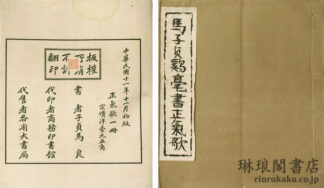 中華民國十一年十一月初版
正氣歌一冊
定價洋壹元五角
版權
所有
不許
翻印
書者子貞馬良
代印者商務印書館
代售者各省大書局
馬子貞鷄毫書正氣歌
琳琅閣書店
rinrokaku.co.jp